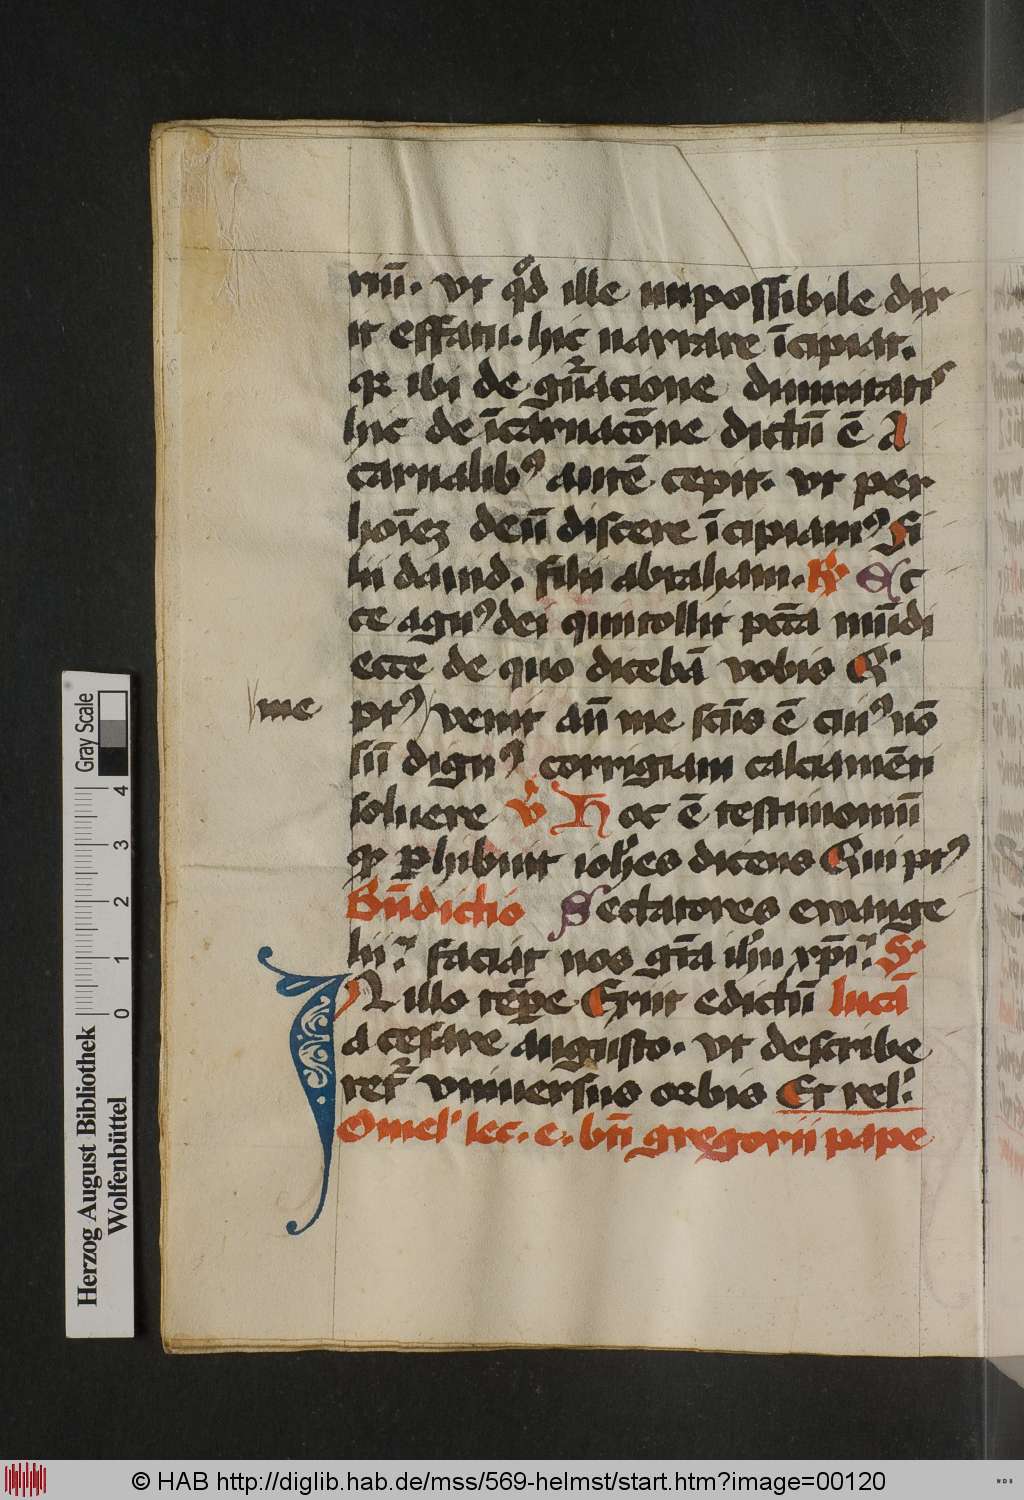 riū. vt qd ille impossibile dix
it effatū. hic narrare īcipiat.
qr ibi de gn̄acione diuinitatis
hic de īcarnacōne dictū ē A
carnalibꝰ autē cepit. vt per
hoīez deū discere īcipiamꝰ Fi
lii dauid. filii abraham. R. Ec
ce agnꝰ dei qui tollit pctā mūdi
ecce de quo dicebā vobis Q.
ptꝰ / venit an̄ me sctūs ē cuiꝰ nō
me
sū dignꝰ corrigiam calciamēti
soluere v Hoc ē testimoniū
qd ꝑhibuit ioħes dicens Qui ptꝰ
Bn̄dictio Sectatores ewange
lii. faciat nos grā ihū xpi. S.
IN illo tēpe Exiit edictū lucā
a cesare augusto. vt describe
retr vniuersus orbis Et rel.
Omel. lec. e. bti gregorii pape
Gray Scale
0 1 2 3 4
Herzog August Bibliothek
Wolfenbüttel
© HAB http://diglib.hab.de/mss/569-helmst/start.htm?image=00120